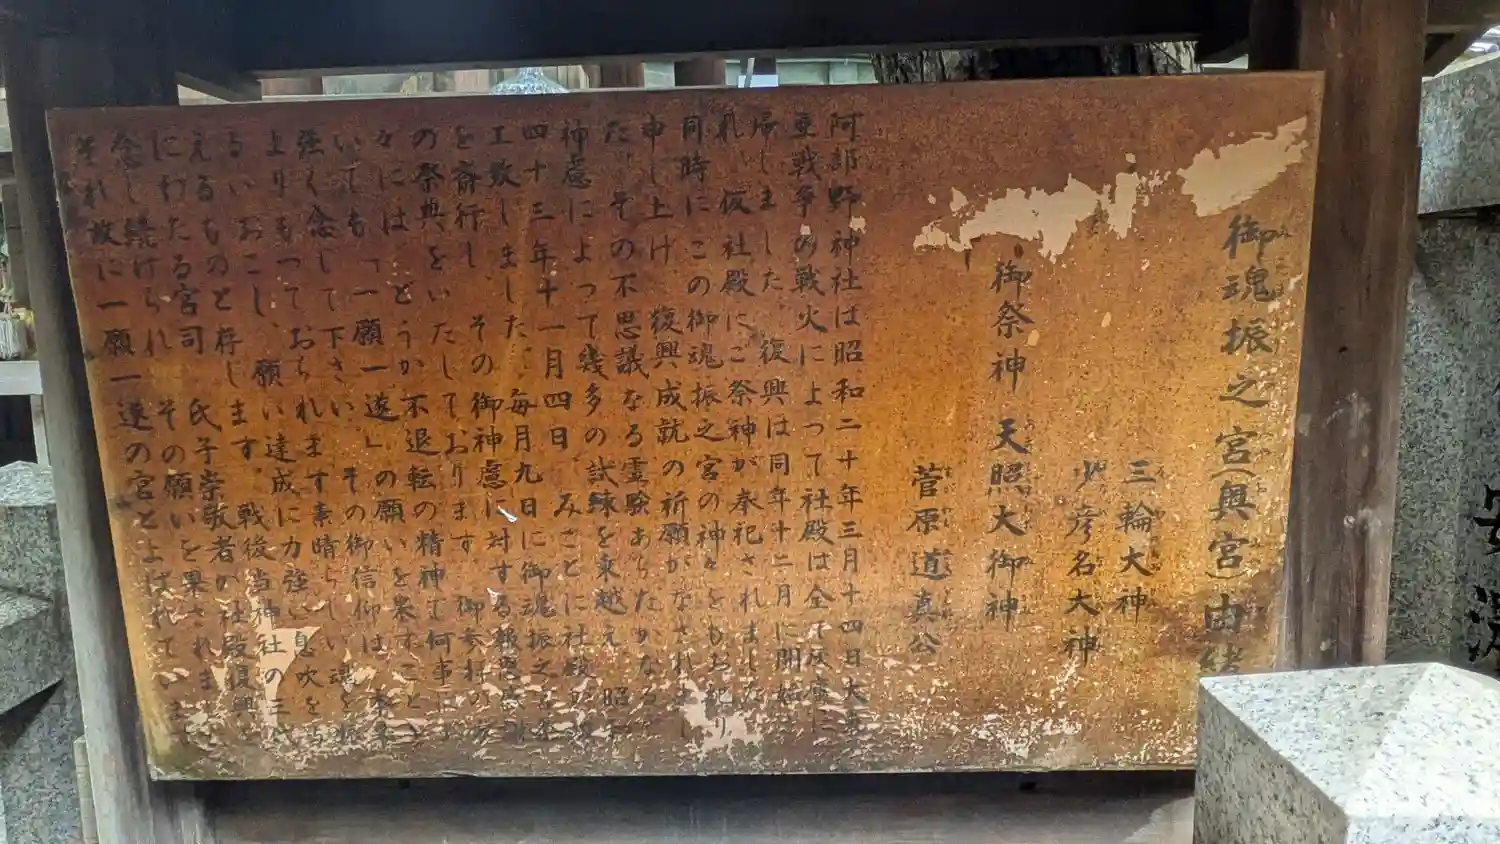 御魂振之宮(興宮)由緒
三輪大神
少彦名大神
御祭神 天照大御神
菅原道真公
阿部野神社は昭和二十年三月十四日大東
亜戦争の戦火によって社殿は全て灰塵に
帰しました。復興は同年十二月に開始
れ、仮社殿にご祭神が奉祀されました。
同時にこの御魂振之宮の神々をもお祀り
申し上げ 復興成就の祈願がなされまし
た。その不思議なる霊験あらたかなる
神慮によって幾多の試練を乗越え 昭和
四十三年十一月四日、みごとに社殿の
工致しました。毎月九日に御魂振之宮祭
を斎行し、その御神慮に対する報恩感謝
の祭典をいたしております。御参拝の方
々には、どうか不退転の精神で何事に
いても「一願一遂」の願いを果すこと
強く念じて下さい。その御信仰は、
よりもっておられます素晴らしい魂を振
るいおこし、願い達成に力強い息吹を与
えるものと存じます。戦後当神社の三代
にわたる宮司 氏子崇敬者が社殿復興
念じ続けられ その願いを果されま
それ故に一願一遂の宮とよばれています